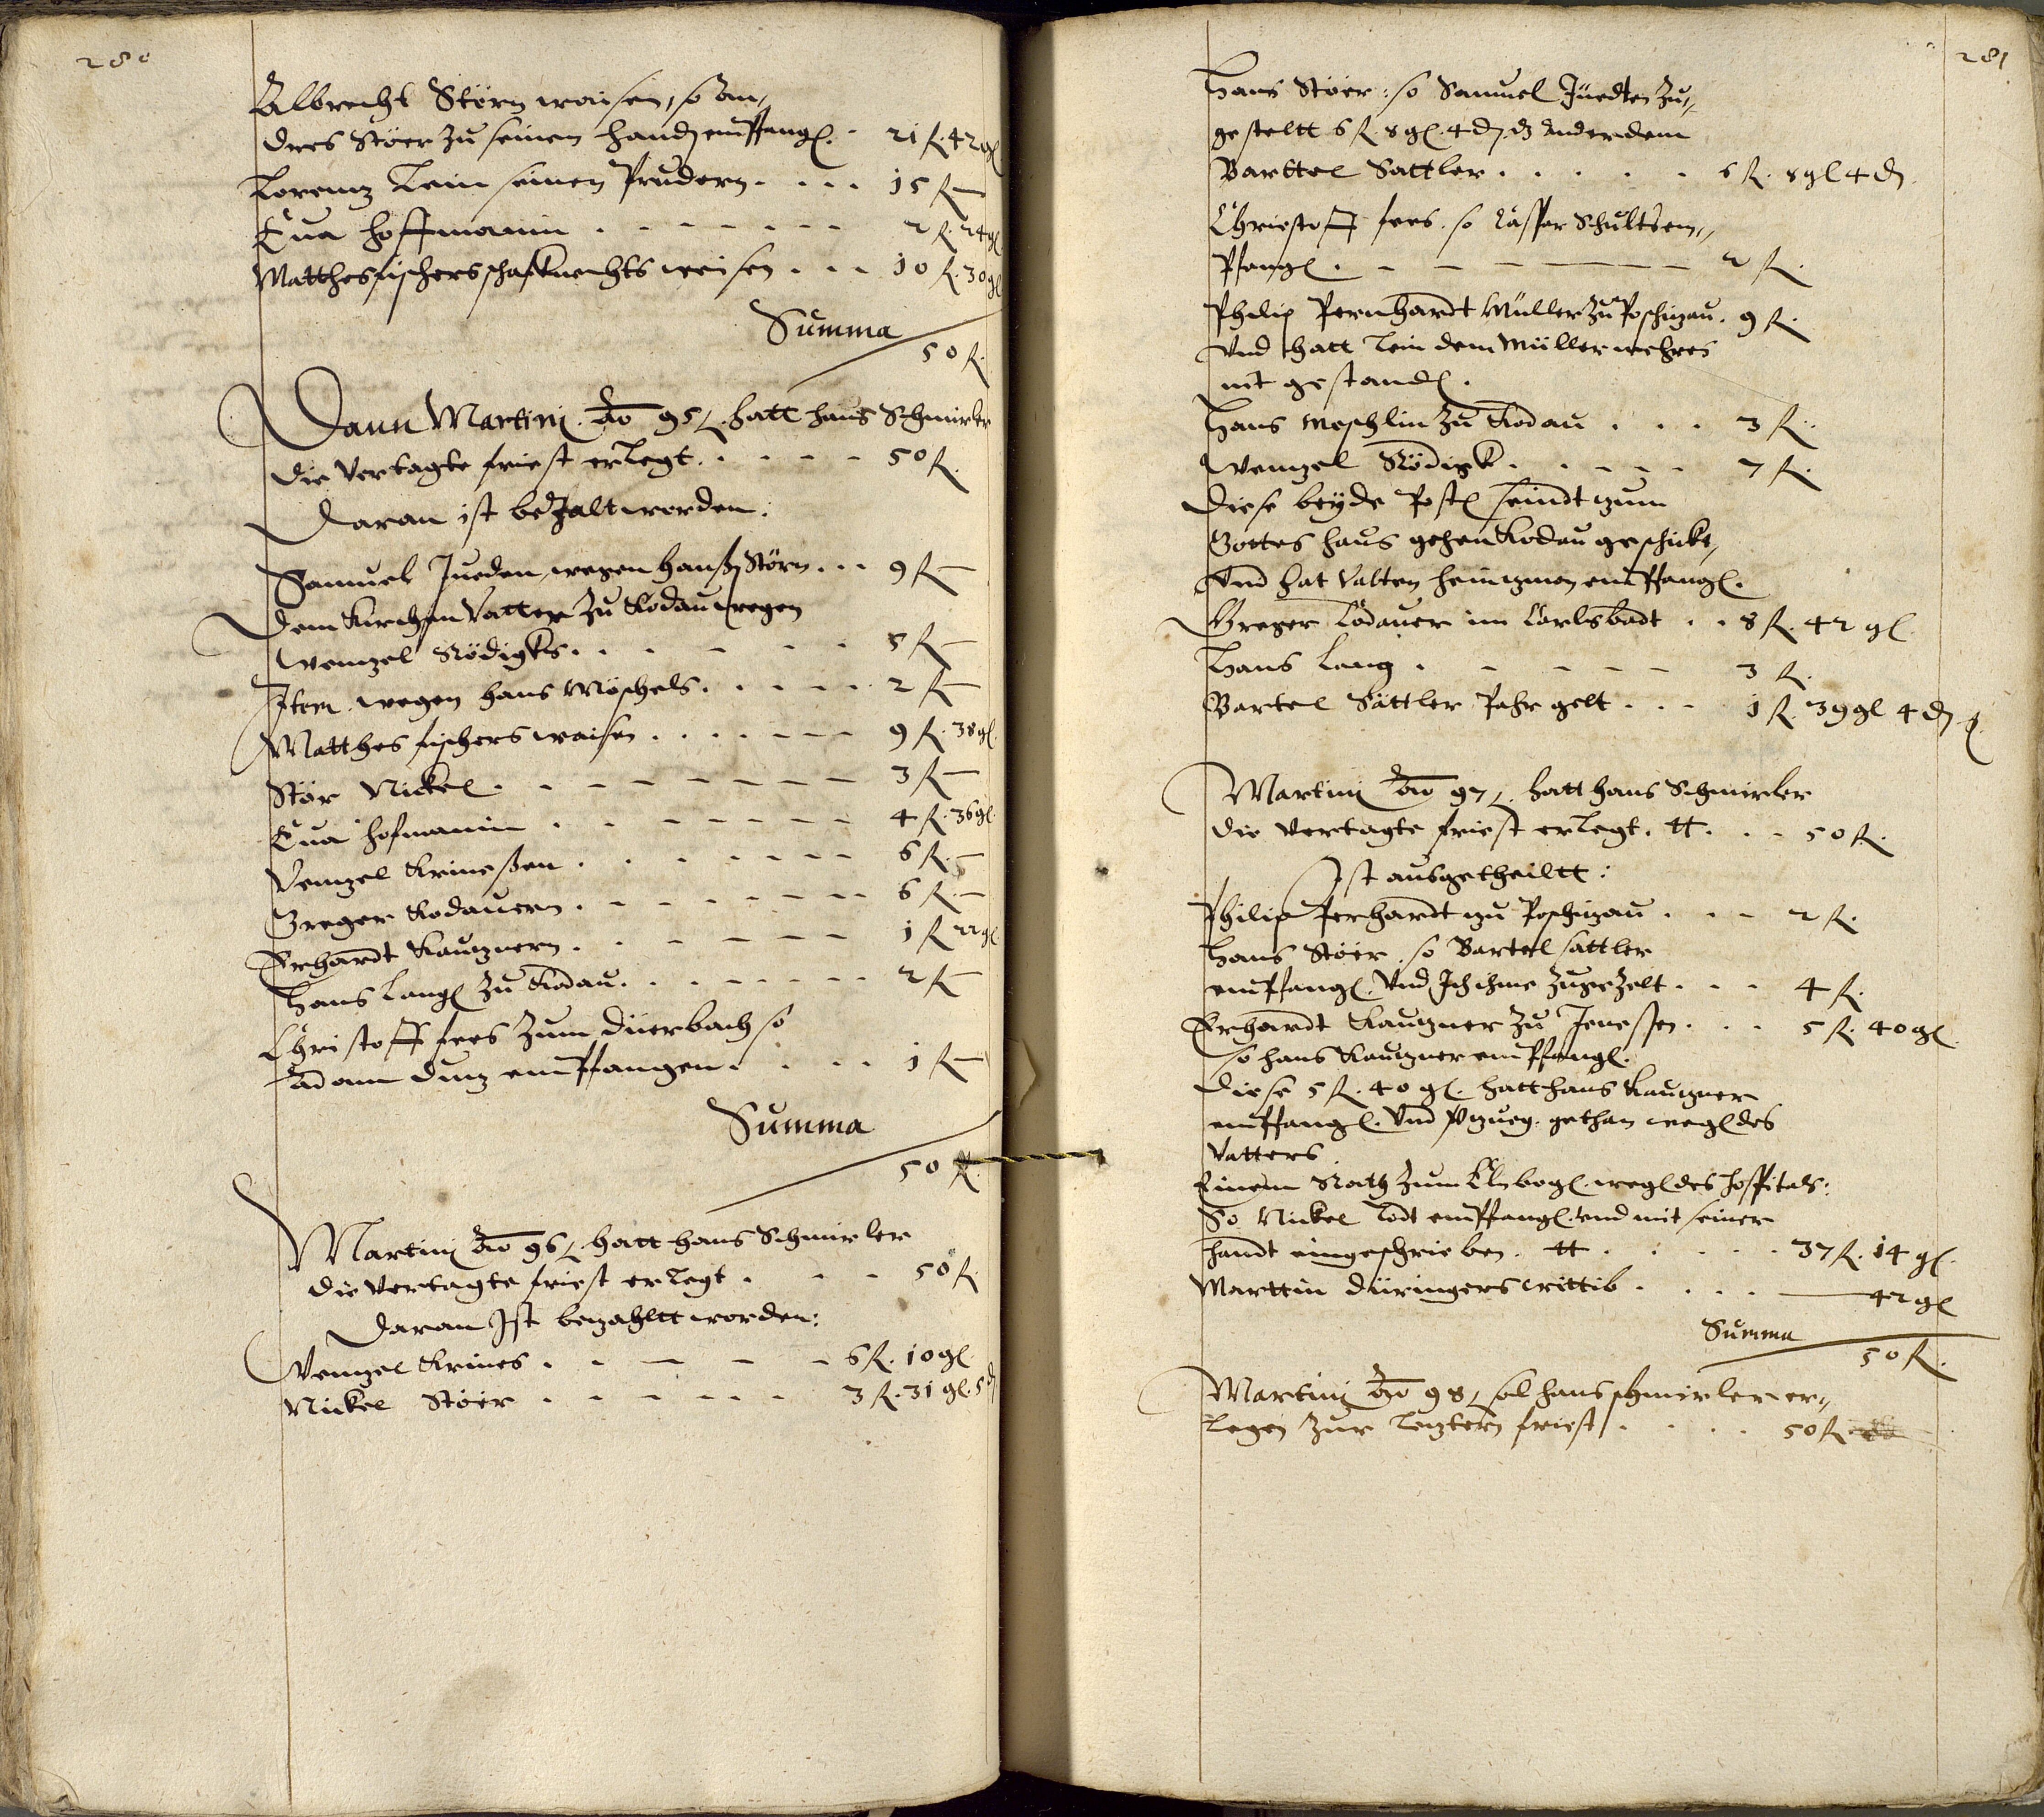 280
Albrecht Störn waisen, so An„
dres Stöer zu seinen handen empfangen. 21 fl. 42 gl
Lorenz Lein seinen Prudern . . . . 15 fl —
Eua Hoffmanin . . . . . . . 2 fl. 24 gl
Matthes fischers schafknechts weisen . . . 10 fl. 30 gl
Summa
50 fl.
Dann Martinj. Ao 95. hatt hans Schmirler
die Vertagte friest erlegt . . . . . 50 fl.
Daran ist beZalt worden:
Samuel Jueden, wegen Hanß Störn . . . 9 fl —
Dem Kirchen Vatter zu Kodau wegen
Wenzel Rödigks . . . . . . . 5 fl —
Item wegen hans Möschels . . . . . 2 fl —
Matthes fischers waisen . . . . . . . 9 fl. 38 gl.
Stör Nickel . . . . . . . . . 3 fl —
Eua Hofmanin . . . . . . . . 4 fl. 36 gl.
Wenzel Krineßen . . . . . . . . 6 fl. —
Greger Kodauern . . . . . . . . 6 fl. —
Erhardt Kauznern . . . . . . . 1 fl 22 gl
Hans Langen zu Kodau . . . . . . . 2 fl —
Christoff fees zum Düerbach so
Adam Dinz empfangen . . . . . 1 fl —
Summa
50 fl.
Martinj Ao 96. hatt hans Schmirler
die Vertagte friest erlegt . . . . 50 fl.
Daran Ist bezahltt worden:
Wenzel Krines . . . . . . 6 fl. 10 gl.
Nickel Stöer . . . . . . . 3 fl. 31 gl. 5 d
281
Hans Stöer: so Samuel Jüedten zu„
gestellt 6 fl. 8 gl. 4 d. dz Ander dem
Barttel Sattler . . . . . 6 fl. 8 gl 4 d
Christoff fees. so Casper Schultsem„
Pfangen . — — — — — 2 fl.
Philip Pernhardt Müller zu Poschizau. 9 fl.
Vnd hatt Lein dem Müller mehres
nit gestanden.
Hans Moschlin zu Kodau . . . 3 fl.
Wenzel Rödigk . . . . . . 7 fl.
Diese beyde Posten seindt zum
Gottes haus gehen Kodau geschickt,
Vnd hat Valten heinzman empfangen.
Greger Codauer im Carlsbadt . . 8 fl. 42 gl
Hans Lang . . . . . . 3 fl.
Bartel Sättler Pahr gelt . . . 1 fl. 39 gl 4 d
Martinj Ao 97. hatt hans Schmirler
die vertagte friest erlegt. tt . . . 50 fl.
Ist ausgetheiltt:
Philip Perhardt zu Poschizau . . . 2 fl.
Hans Stöer. so Bartel sattler
empfangen. Vnd Ich ihme zugeZelt . . . 4 fl.
Erhardt Kauzner zu Jenessen . . . 5 fl. 40 gl.
so hans Kauzner empfangen.
Diese 5 fl. 40 gl. hatt hans Kauzner
empfangen. Vnd gethan wegen des
Vatters
Einem Rath zum Elnbogen. wegen des hospitals:
So Nickel Lodt empfangen. vnd mit seiner
handt eingeschrieben. tt . . . . . 37 fl. 14 gl.
Marttin Düringers wittib . . . . — 42 gl
Summa
50 fl.
Martinj Ao 98. sol hans schmirler er„
legen zur Leztern friest . . . . 50 fl.